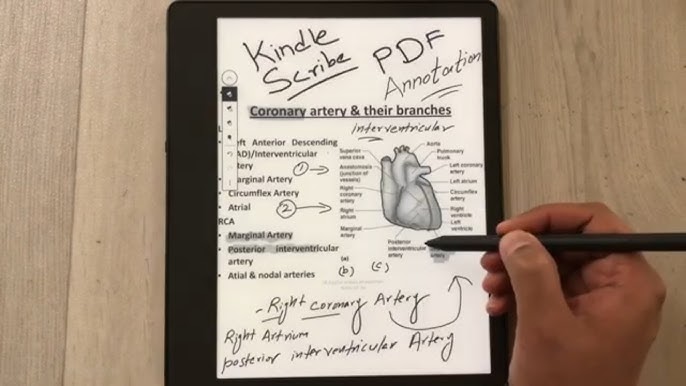 Kindle
Scribe
PDF
Annotation
Coronary artery & their branches
Interventricular
eft Anterior Descending
AD)/Interventricular
rtery
1
arginal Artery
Circumflex Artery
Atrial
2
RCA
Marginal Artery
Posterior interventricular
artery
Atial & nodal arteries
Superior
vena cava
Anastomosis
(junction of
vessels)
Right
coronary
artery
Right
atrium
Marginal
artery
Aorta
Pulmonary
trunk
Left coronary
artery
Left atrium
Circumflex
artery
Right
ventricle
Left
ventricle
Posterior
interventricular
artery
artery
(a)
(b) (c)
- Right coronary Artery
Right Artrium
posterior interventricular Artery